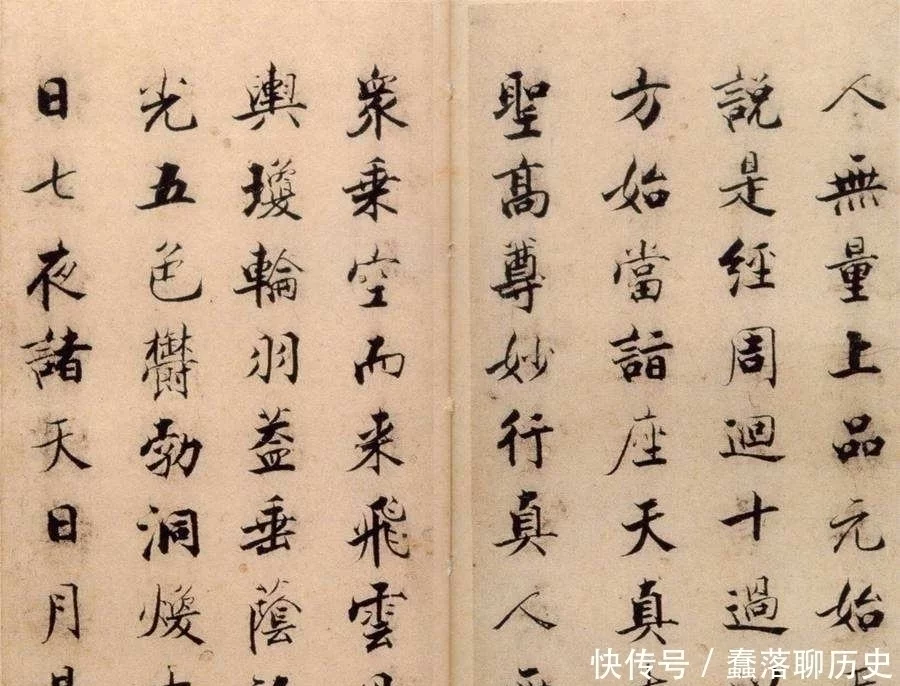 人無量上品元始
說是經周迴十過
方始當詣座天真
聖高尊妙行真人
衆乗空而来飛雲
輿瓊輪羽蓋垂蔭
光五色欝勃洞煥
日七夜諸天日月
快传号/蠢落聊历史